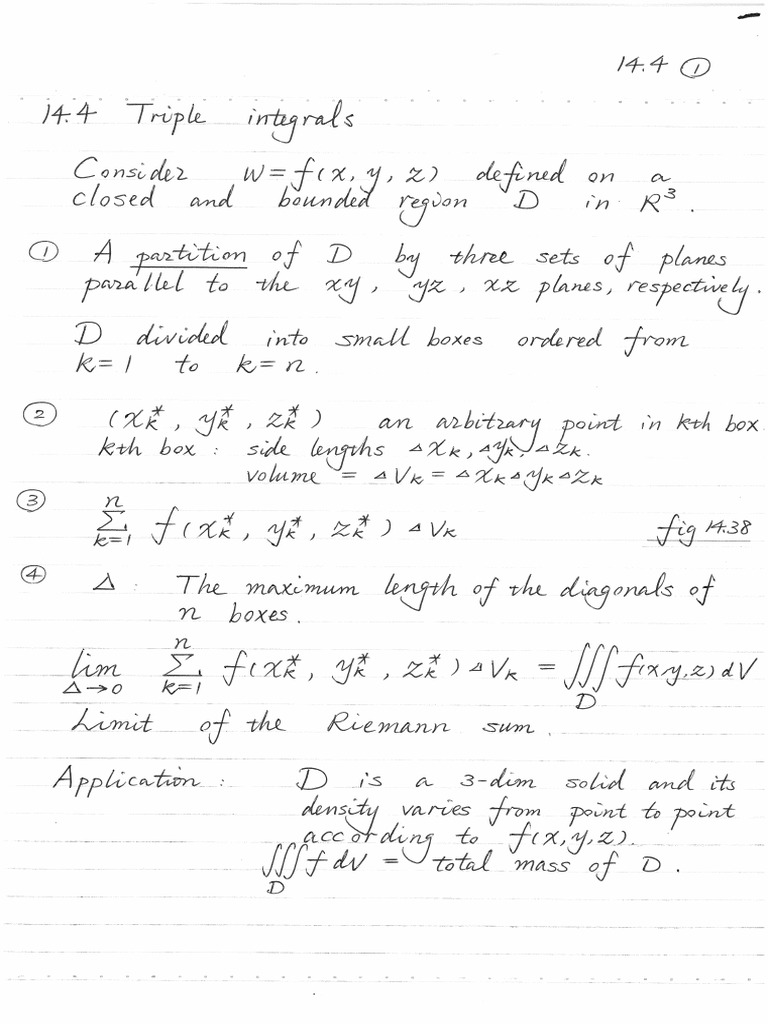 14.4 ①
14.4 Triple integrals
Consider w = f(x, y, z) defined on a
closed and bounded region D in R³.
① A partition of D by three sets of planes
parallel to the xy, yz, xz planes, respectively.
D divided into small boxes ordered from
k = 1 to k = n.
② (xₖ*, yₖ*, zₖ*) an arbitrary point in kth box.
kth box : side lengths ΔXₖ, Δyₖ, Δzₖ.
volume = ΔVₖ = ΔXₖΔyₖΔzₖ
③ ∑ₖ₌₁ⁿ f(xₖ*, yₖ*, zₖ*) ΔVₖ fig 14.38
④ Δ : The maximum length of the diagonals of
n boxes.
lim_{Δ→0} ∑ₖ₌₁ⁿ f(xₖ*, yₖ*, zₖ*) ΔVₖ = ∭_D f(x,y,z) dV
Limit of the Riemann sum.
Application : D is a 3-dim solid and its
density varies from point to point
according to f(x,y,z).
∭_D f dV = total mass of D.